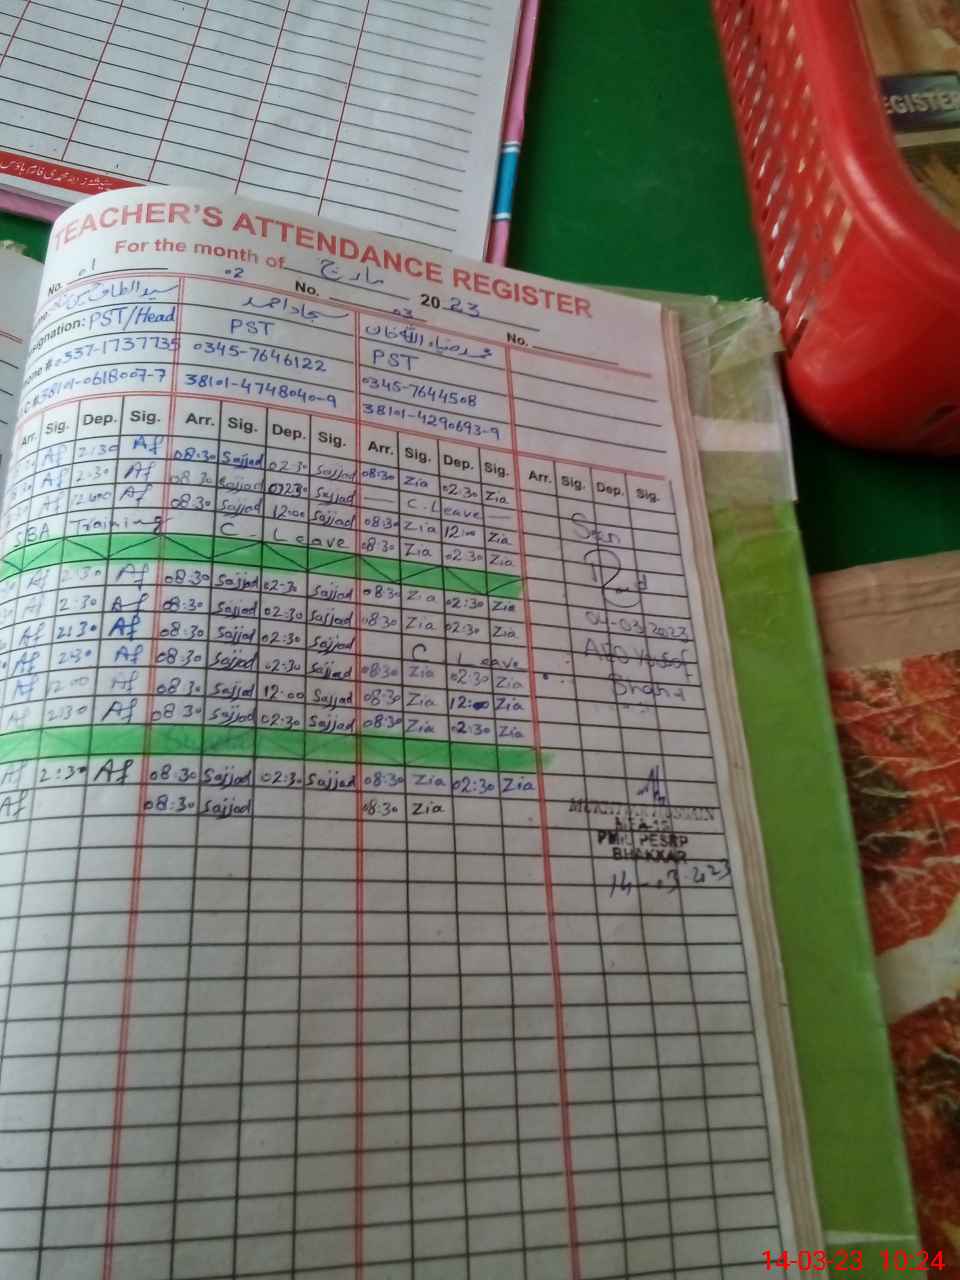 EGISTER
TEACHER'S ATTENDANCE REGISTER
For the month of مارچ 2023
No. 01
02 No. 03 No.
سجاد احمد
signation: PST/Head PST PST
0337-1737735 0345-7646122 0345-7644508
38101-0618007-7 38101-4748040-9 38101-4290693-9
Arr. Sig. Dep. Sig. Arr. Sig. Dep. Sig. Arr. Sig. Dep. Sig. Arr. Sig. Dep. Sig.
Af 2:30 Af 08:30 Sajjad 02:30 Sajjad 08:30 Zia 02:30 Zia
Af 2:30 Af 08:30 Sajjad 02:30 Sajjad — C. Leave —
Af 12:00 Af 08:30 Sajjad 12:00 Sajjad 08:30 Zia 12:00 Zia
SBA Training C - Leave 08:30 Zia 02:30 Zia
Af 2:30 Af 08:30 Sajjad 02:30 Sajjad 08:30 Zia 02:30 Zia
Af 2:30 Af 08:30 Sajjad 02:30 Sajjad 08:30 Zia 02:30 Zia
Af 2:30 Af 08:30 Sajjad 02:30 Sajjad C Leave
Af 2:30 Af 08:30 Sajjad 02:30 Sajjad 08:30 Zia 02:30 Zia
Af 12:00 Af 08:30 Sajjad 12:00 Sajjad 08:30 Zia 12:00 Zia
Af 2:30 Af 08:30 Sajjad 02:30 Sajjad 08:30 Zia 02:30 Zia
Af 2:30 Af 08:30 Sajjad 02:30 Sajjad 08:30 Zia 02:30 Zia
Af 08:30 Sajjad 08:30 Zia
04-03-2023
AEO
PESRP
BHAKKAR
14-03-23 10:24